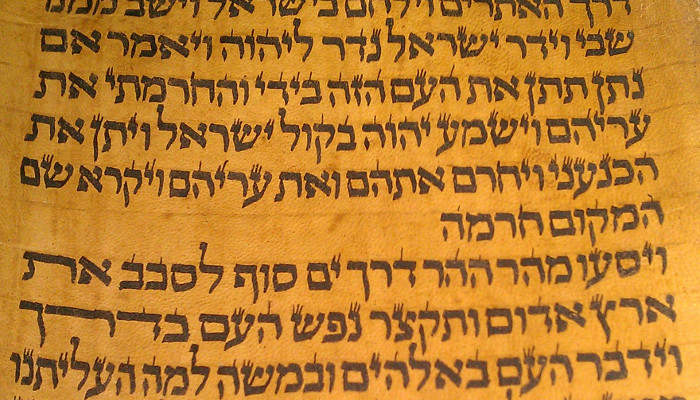 דרך האתרים וילחם בישראל וישב ממנו
שבי וידר ישראל נדר ליהוה ויאמר אם
נתן תתן את העם הזה בידי והחרמתי את
עריהם וישמע יהוה בקול ישראל ויתן את
הכנעני ויחרם אתהם ואת עריהם ויקרא שם
המקום חרמה
ויסעו מהר ההר דרך ים סוף לסבב את
ארץ אדום ותקצר נפש העם בדרך
וידבר העם באלהים ובמשה למה העליתנו